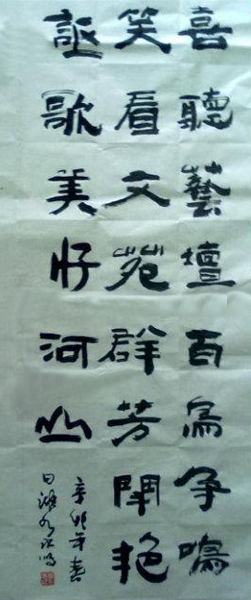 喜聽藝壇百鳥争鳴
笑看文苑群芳鬧艳
謳歌美好河山
辛卯年春